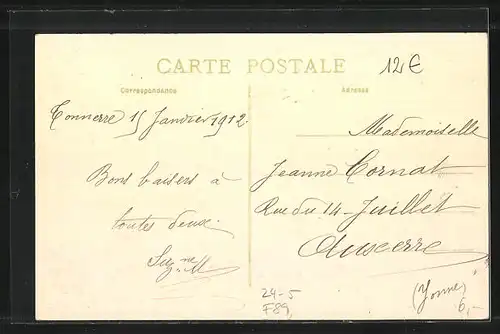 CARTE POSTALE
12€
Correspondance
Adresse
Tonnerre 15 Janvier 1912.
Mademoiselle
Jeanne Cornat
Bons baisers à
toutes deux.
Rue du 14 Juillet
Auxerre
Suz.ne M
(Yonne)
24-5
F89,
6,-